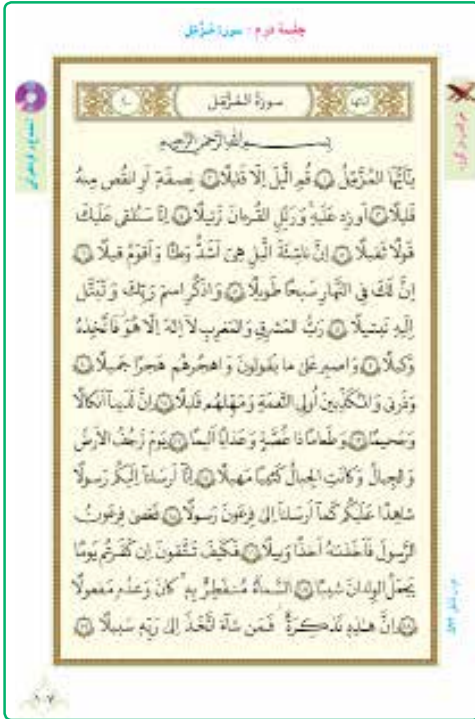 جلسهٔ دوم : سورهٔ مُزَّمِّل
سورَةُ المُزَّمِّل
بِسمِ اللهِ الرَّحمٰنِ الرَّحیمِ
یٰٓاَیُّهَا المُزَّمِّلُ ۱ قُمِ الَّیلَ اِلّا قَلیلًا ۲ نِصفَهٓ اَوِ انقُص مِنهُ
قَلیلًا ۳ اَو زِد عَلَیهِ وَ رَتِّلِ القُرءانَ تَرتیلًا ۴ اِنّا سَنُلقی عَلَیکَ
قَولًا ثَقیلًا ۵ اِنَّ ناشِئَةَ الَّیلِ هِیَ اَشَدُّ وَطئًا وَ اَقوَمُ قیلًا ۶
اِنَّ لَکَ فِی النَّهارِ سَبحًا طَویلًا ۷ وَ اذکُرِ اسمَ رَبِّکَ وَ تَبَتَّل
اِلَیهِ تَبتیلًا ۸ رَبُّ المَشرِقِ وَ المَغرِبِ لآ اِلٰهَ اِلّا هُوَ فَاتَّخِذهُ
وَکیلًا ۹ وَ اصبِر عَلیٰ ما یَقولونَ وَ اهجُرهُم هَجرًا جَمیلًا ۱۰
وَ ذَرنی وَ المُکَذِّبینَ اُولِی النَّعمَةِ وَ مَهِّلهُم قَلیلًا ۱۱ اِنَّ لَدَینآ اَنکالًا
وَ جَحیمًا ۱۲ وَ طَعامًا ذا غُصَّةٍ وَ عَذابًا اَلیمًا ۱۳ یَومَ تَرجُفُ الاَرضُ
وَ الجِبالُ وَ کانَتِ الجِبالُ کَثیبًا مَهیلًا ۱۴ اِنّآ اَرسَلنآ اِلَیکُم رَسولًا
شاهِدًا عَلَیکُم کَمآ اَرسَلنآ اِلیٰ فِرعَونَ رَسولًا ۱۵ فَعَصیٰ فِرعَونُ
الرَّسولَ فَاَخَذنٰهُ اَخذًا وَبیلًا ۱۶ فَکَیفَ تَتَّقونَ اِن کَفَرتُم یَومًا
یَجعَلُ الوِلدانَ شیبًا ۱۷ اَلسَّمآءُ مُنفَطِرٌ بِهٖ کانَ وَعدُهٗ مَفعولًا
۱۸ اِنَّ هٰذِهٖ تَذکِرَةٌ فَمَن شآءَ اتَّخَذَ اِلیٰ رَبِّهٖ سَبیلًا ۱۹
۱۰۷